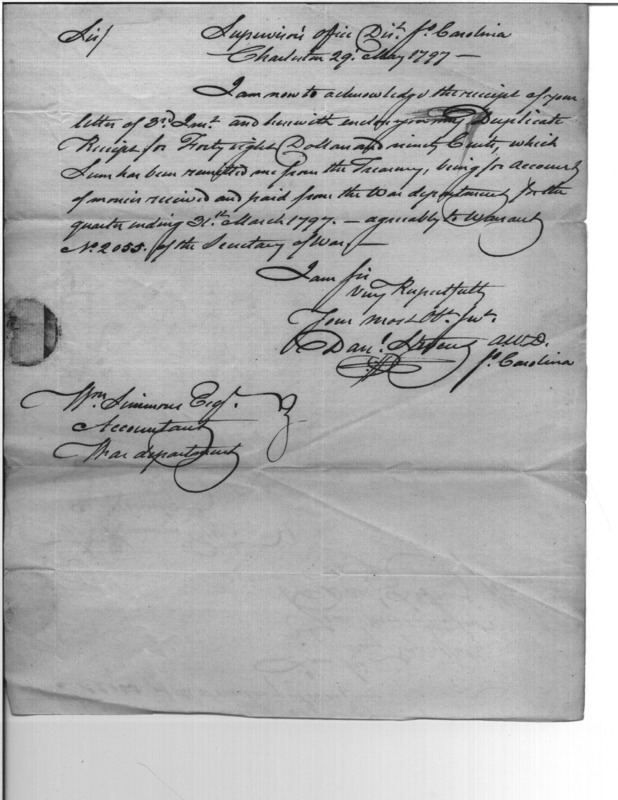 Sir/ Supervisor's office Dist. So. Carolina
Charleston 29. May 1797 —
I am now to acknowledge the receipt of your
letter of 3rd. Inst. and herewith enclose you my Duplicate
Receipt for Forty eight Dollars and ninety Cents, which
Sum has been remitted me from the Treasury, being for Account
of monies received and paid from the War department for the
quarter ending 31st. March 1797. — agreeably to Warrant
No. 2055. of the Secretary of War. —
I am Sir
Very Respectfully
Your most Obt. Svt.
Danl. Stevens A.W.D.
So. Carolina
Wm. Simmons Esqr.
Accountant
War department